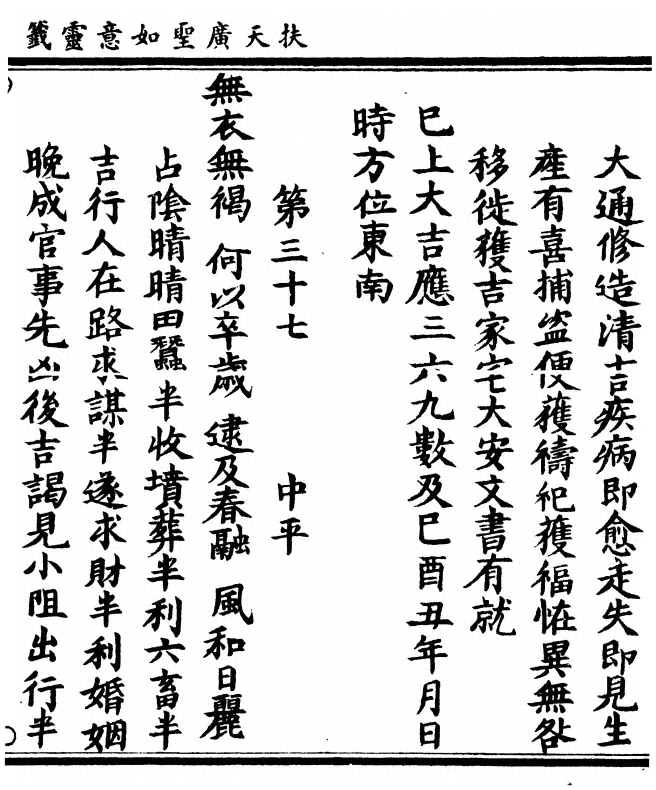 扶天廣聖如意靈籤
大通修造清吉疾病即愈走失即見生
產有喜捕盜便獲禱祀獲福恠異無咎
移徙獲吉家宅大安文書有就
巳上大吉應三六九數及巳酉丑年月日
時方位東南
第三十七　中平
無衣無褐　何以卒歲　逮及春融　風和日麗
占陰晴晴田蠶半收墳葬半利六畜半
吉行人在路求謀半遂求財半利婚姻
晚成官事先凶後吉謁見小阻出行半